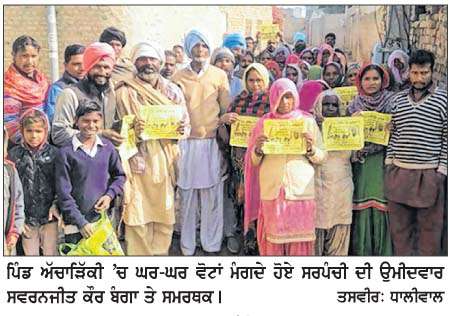 ਪਿੰਡ ਅੱਚਾੜਿੱਕੀ ’ਚ ਘਰ-ਘਰ ਵੋਟਾਂ ਮੰਗਦੇ ਹੋਏ ਸਰਪੰਚੀ ਦੀ ਉਮੀਦਵਾਰ
ਸਵਰਨਜੀਤ ਕੌਰ ਬੰਗਾ ਤੇ ਸਮਰਥਕ। ਤਸਵੀਰ: ਧਾਲੀਵਾਲ